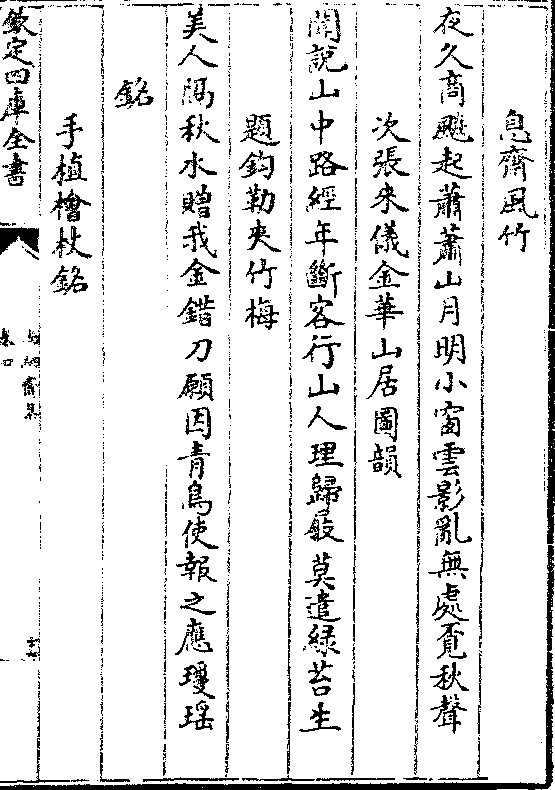 息齋風竹
夜久商飈起蕭蕭山月明小窗雲影亂無處覔秋聲
次張來儀金華山居圖韻
聞說山中路經年斷客行山人理歸屐莫遣緑苔生
題鈎勒夾竹梅
美人隔秋水贈我金錯刀願因青鳥使報之應瓊瑶
銘
手植檜杖銘
欽定四庫全書